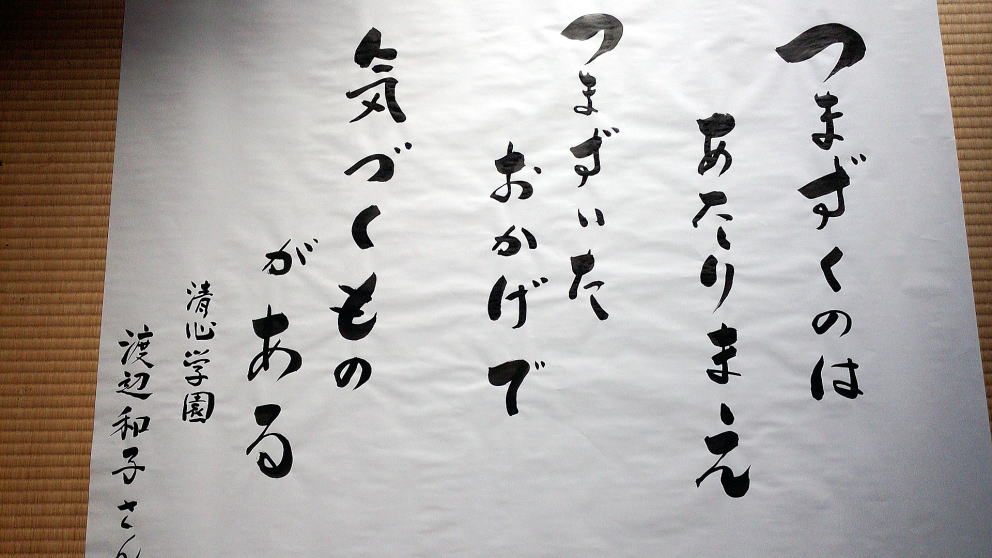 つまずくのは
あたりまえ
つまずいた
おかげで
気づくもの
がある
清心学園
渡辺和子さん